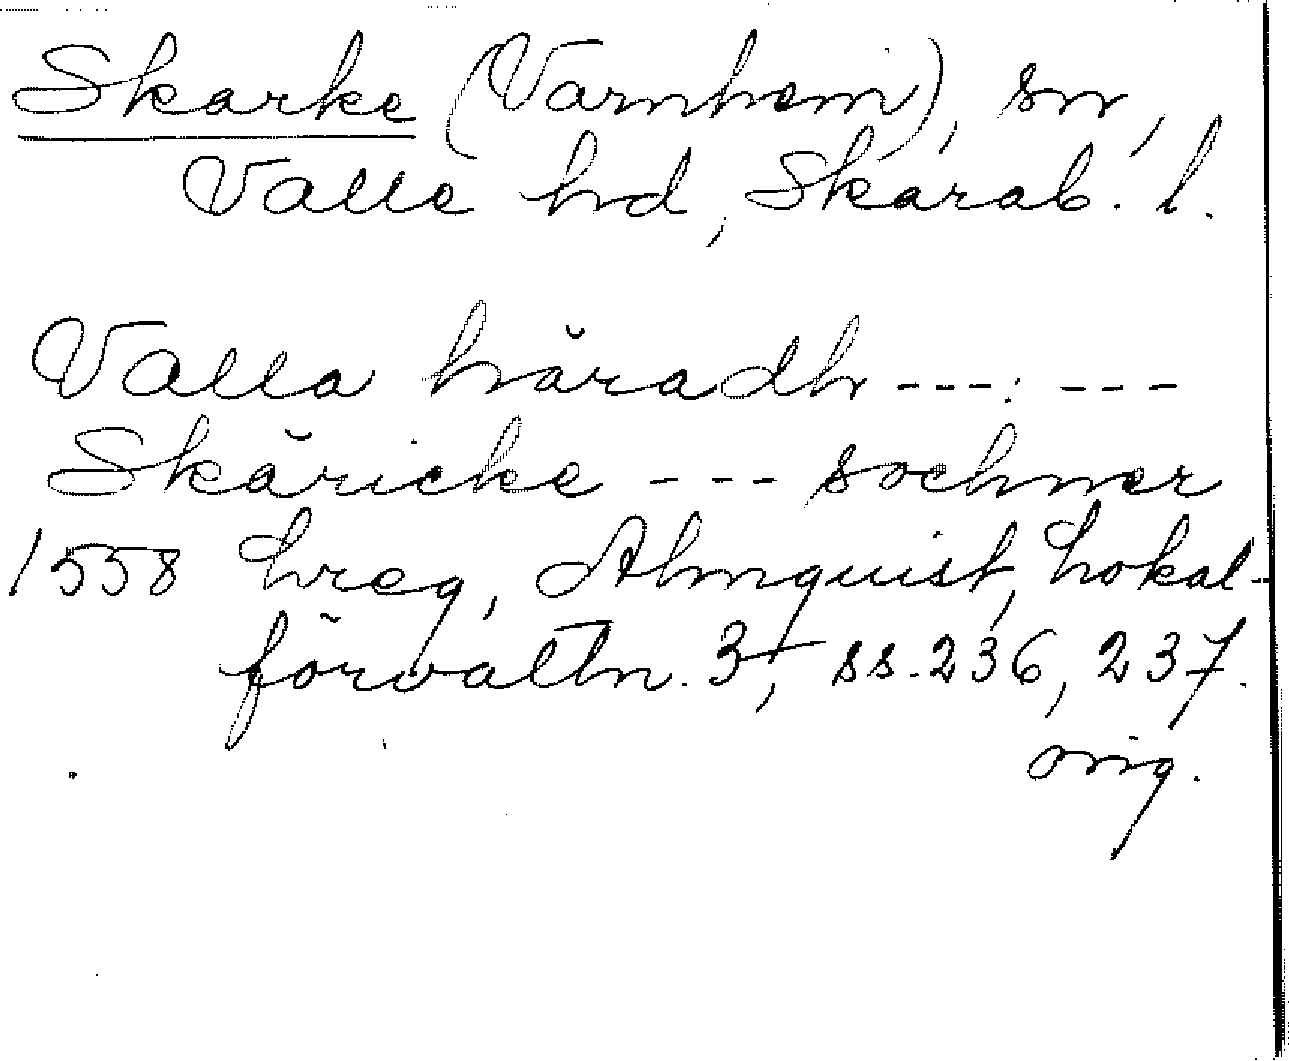 Skarke (Varnhem), sn,
Valle hd, Skarab. l.
Valla häradh ---: ---
Skäricke --- sochner
1558 hreg, Almquist, Lokal-
förvaltn. 3, ss. 236, 237.
orig.